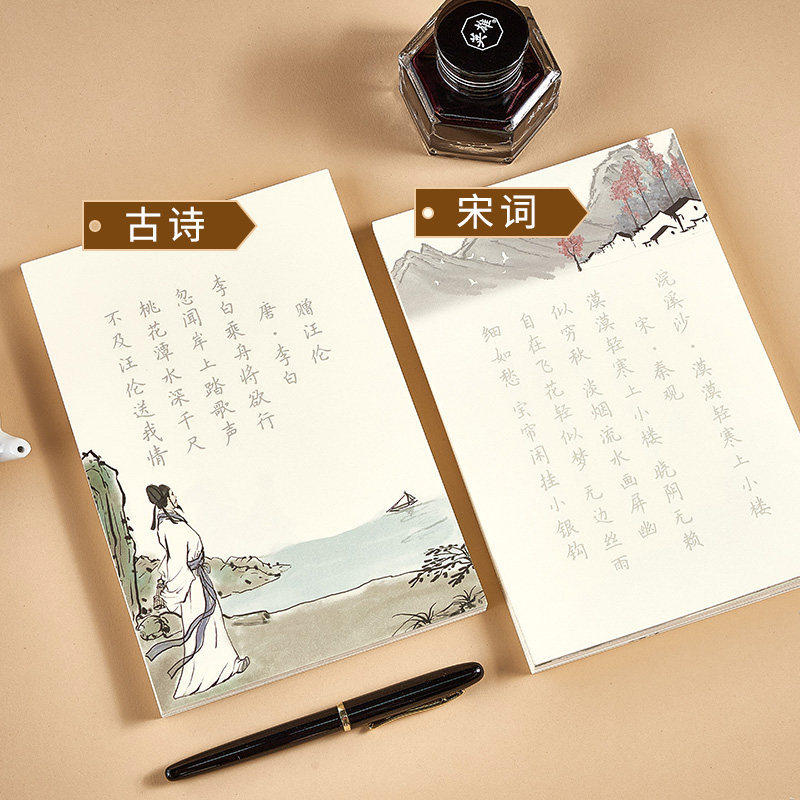 古诗
赠汪伦
唐·李白
李白乘舟将欲行
忽闻岸上踏歌声
桃花潭水深千尺
不及汪伦送我情
宋词
浣溪沙·漠漠轻寒上小楼
宋·秦观
漠漠轻寒上小楼 晓阴无赖
似穷秋 淡烟流水画屏幽
自在飞花轻似梦 无边丝雨
细如愁 宝帘闲挂小银钩
英雄